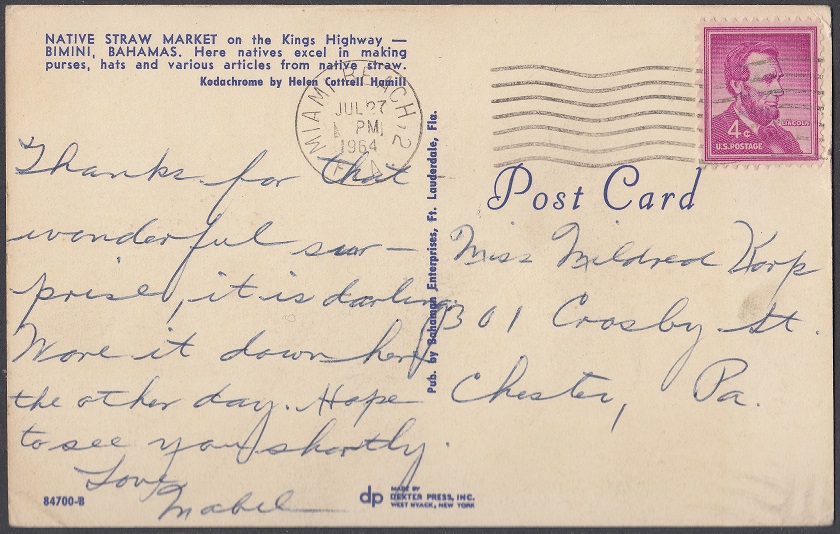 NATIVE STRAW MARKET on the Kings Highway —
BIMINI, BAHAMAS. Here natives excel in making
purses, hats and various articles from native straw.
Kodachrome by Helen Cottrell Hamill
MIAMI BEACH, 2
JUL 27
PM
1964
FLA
LINCOLN
4¢
U.S. POSTAGE
Post Card
Thanks for that
wonderful sur—
prise, it is darling.
Wore it down here
the other day. Hope
to see you shortly.
Love,
Mabel
Pub. by Bahaman Enterprises, Ft. Lauderdale, Fla.
Miss Mildred Korp
1301 Crosby St.
Chester, Pa.
84700-B
dp
MADE BY
DEXTER PRESS, INC.
WEST NYACK, NEW YORK